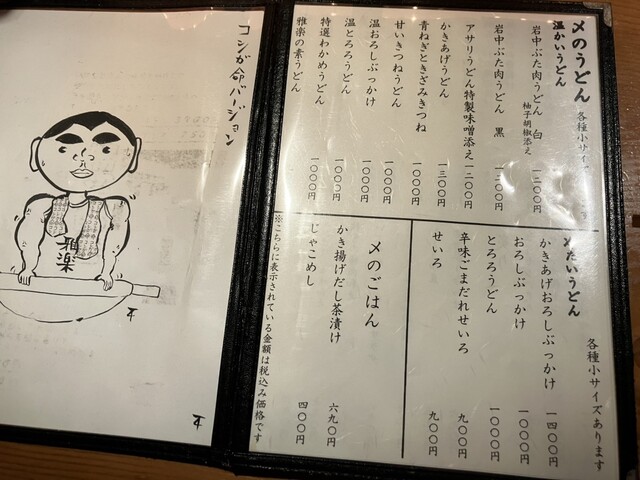 〆のうどん 各種小サイ
温かいうどん
岩中ぶた肉うどん 白 一三〇〇円
柚子胡椒添え
岩中ぶた肉うどん 黒 一三〇〇円
アサリうどん特製味噌添え 一二〇〇円
かきあげうどん 一三〇〇円
青ねぎときざみきつね 一〇〇〇円
甘いきつねうどん 一〇〇〇円
温おろしぶっかけ 一〇〇〇円
温とろろうどん 一〇〇〇円
特選わかめうどん 一〇〇〇円
雅楽の素うどん
各種小サイズあります
〆たいうどん
かきあげおろしぶっかけ 一四〇〇円
おろしぶっかけ 一〇〇〇円
とろろうどん 一〇〇〇円
辛味ごまだれせいろ 九〇〇円
せいろ 九〇〇円
〆のごはん
かき揚げだし茶漬け 六九〇円
じゃこめし 四〇〇円
※こちらに表示されている金額は税込み価格です
コシが命バージョン
雅楽